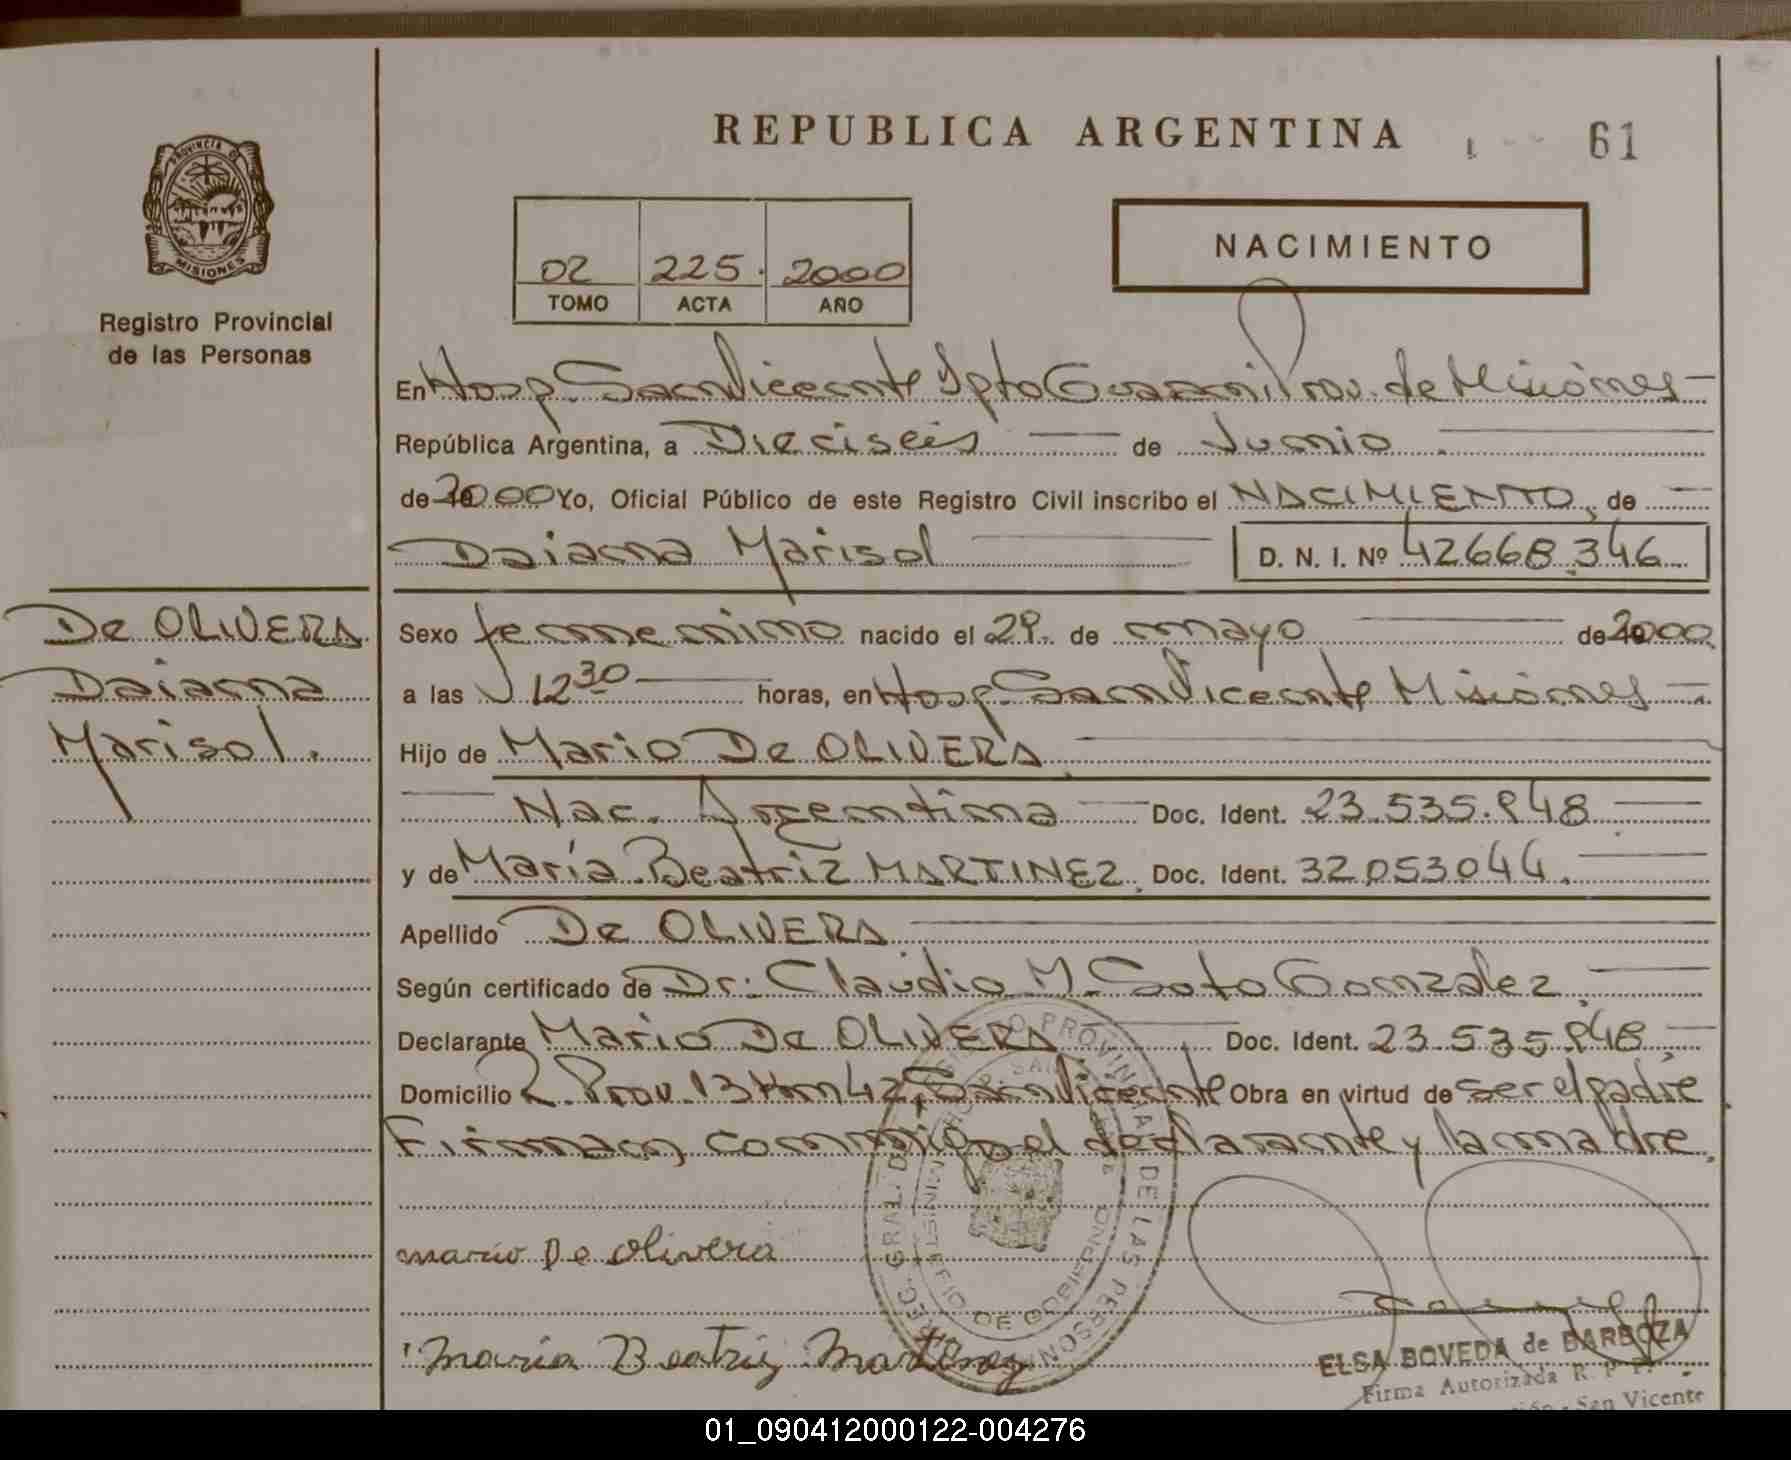 REPUBLICA ARGENTINA
61
PROVINCIA DE
MISIONES
Registro Provincial
de las Personas
02 225. 2000
TOMO ACTA AÑO
NACIMIENTO
En Hosp. San Vicente Dpto Guarani Prov. de Misiónes
República Argentina, a Dieciseis de Junio
de 2000 Yo, Oficial Público de este Registro Civil inscribo el NACIMIENTO, de
Daiana Marisol D. N. I. Nº 42668.346
De OLIVERA
Daiana
Marisol.
Sexo femenino nacido el 29. de mayo de 2000
a las 12 30 horas, en Hosp. San Vicente Misiónes
Hijo de Mario De OLIVERA
Nac. Argentina Doc. Ident. 23.535.948
y de María Beatriz MARTINEZ. Doc. Ident. 32.053044.
Apellido De OLIVERA
Según certificado de Dr: Claudio M. Soto Gonzalez.
Declarante Mario De OLIVERA Doc. Ident. 23.535.948,
Domicilio R. Prov. 13 Km 42, San Vicente Obra en virtud de ser el padre
Firman conmigo el declarante y la madre.
mario De olivera
Maria Beatriz Martinez
ELSA BOVEDA de BARBOZA
Firma Autorizada R. P. P.
San Vicente
01_090412000122-004276